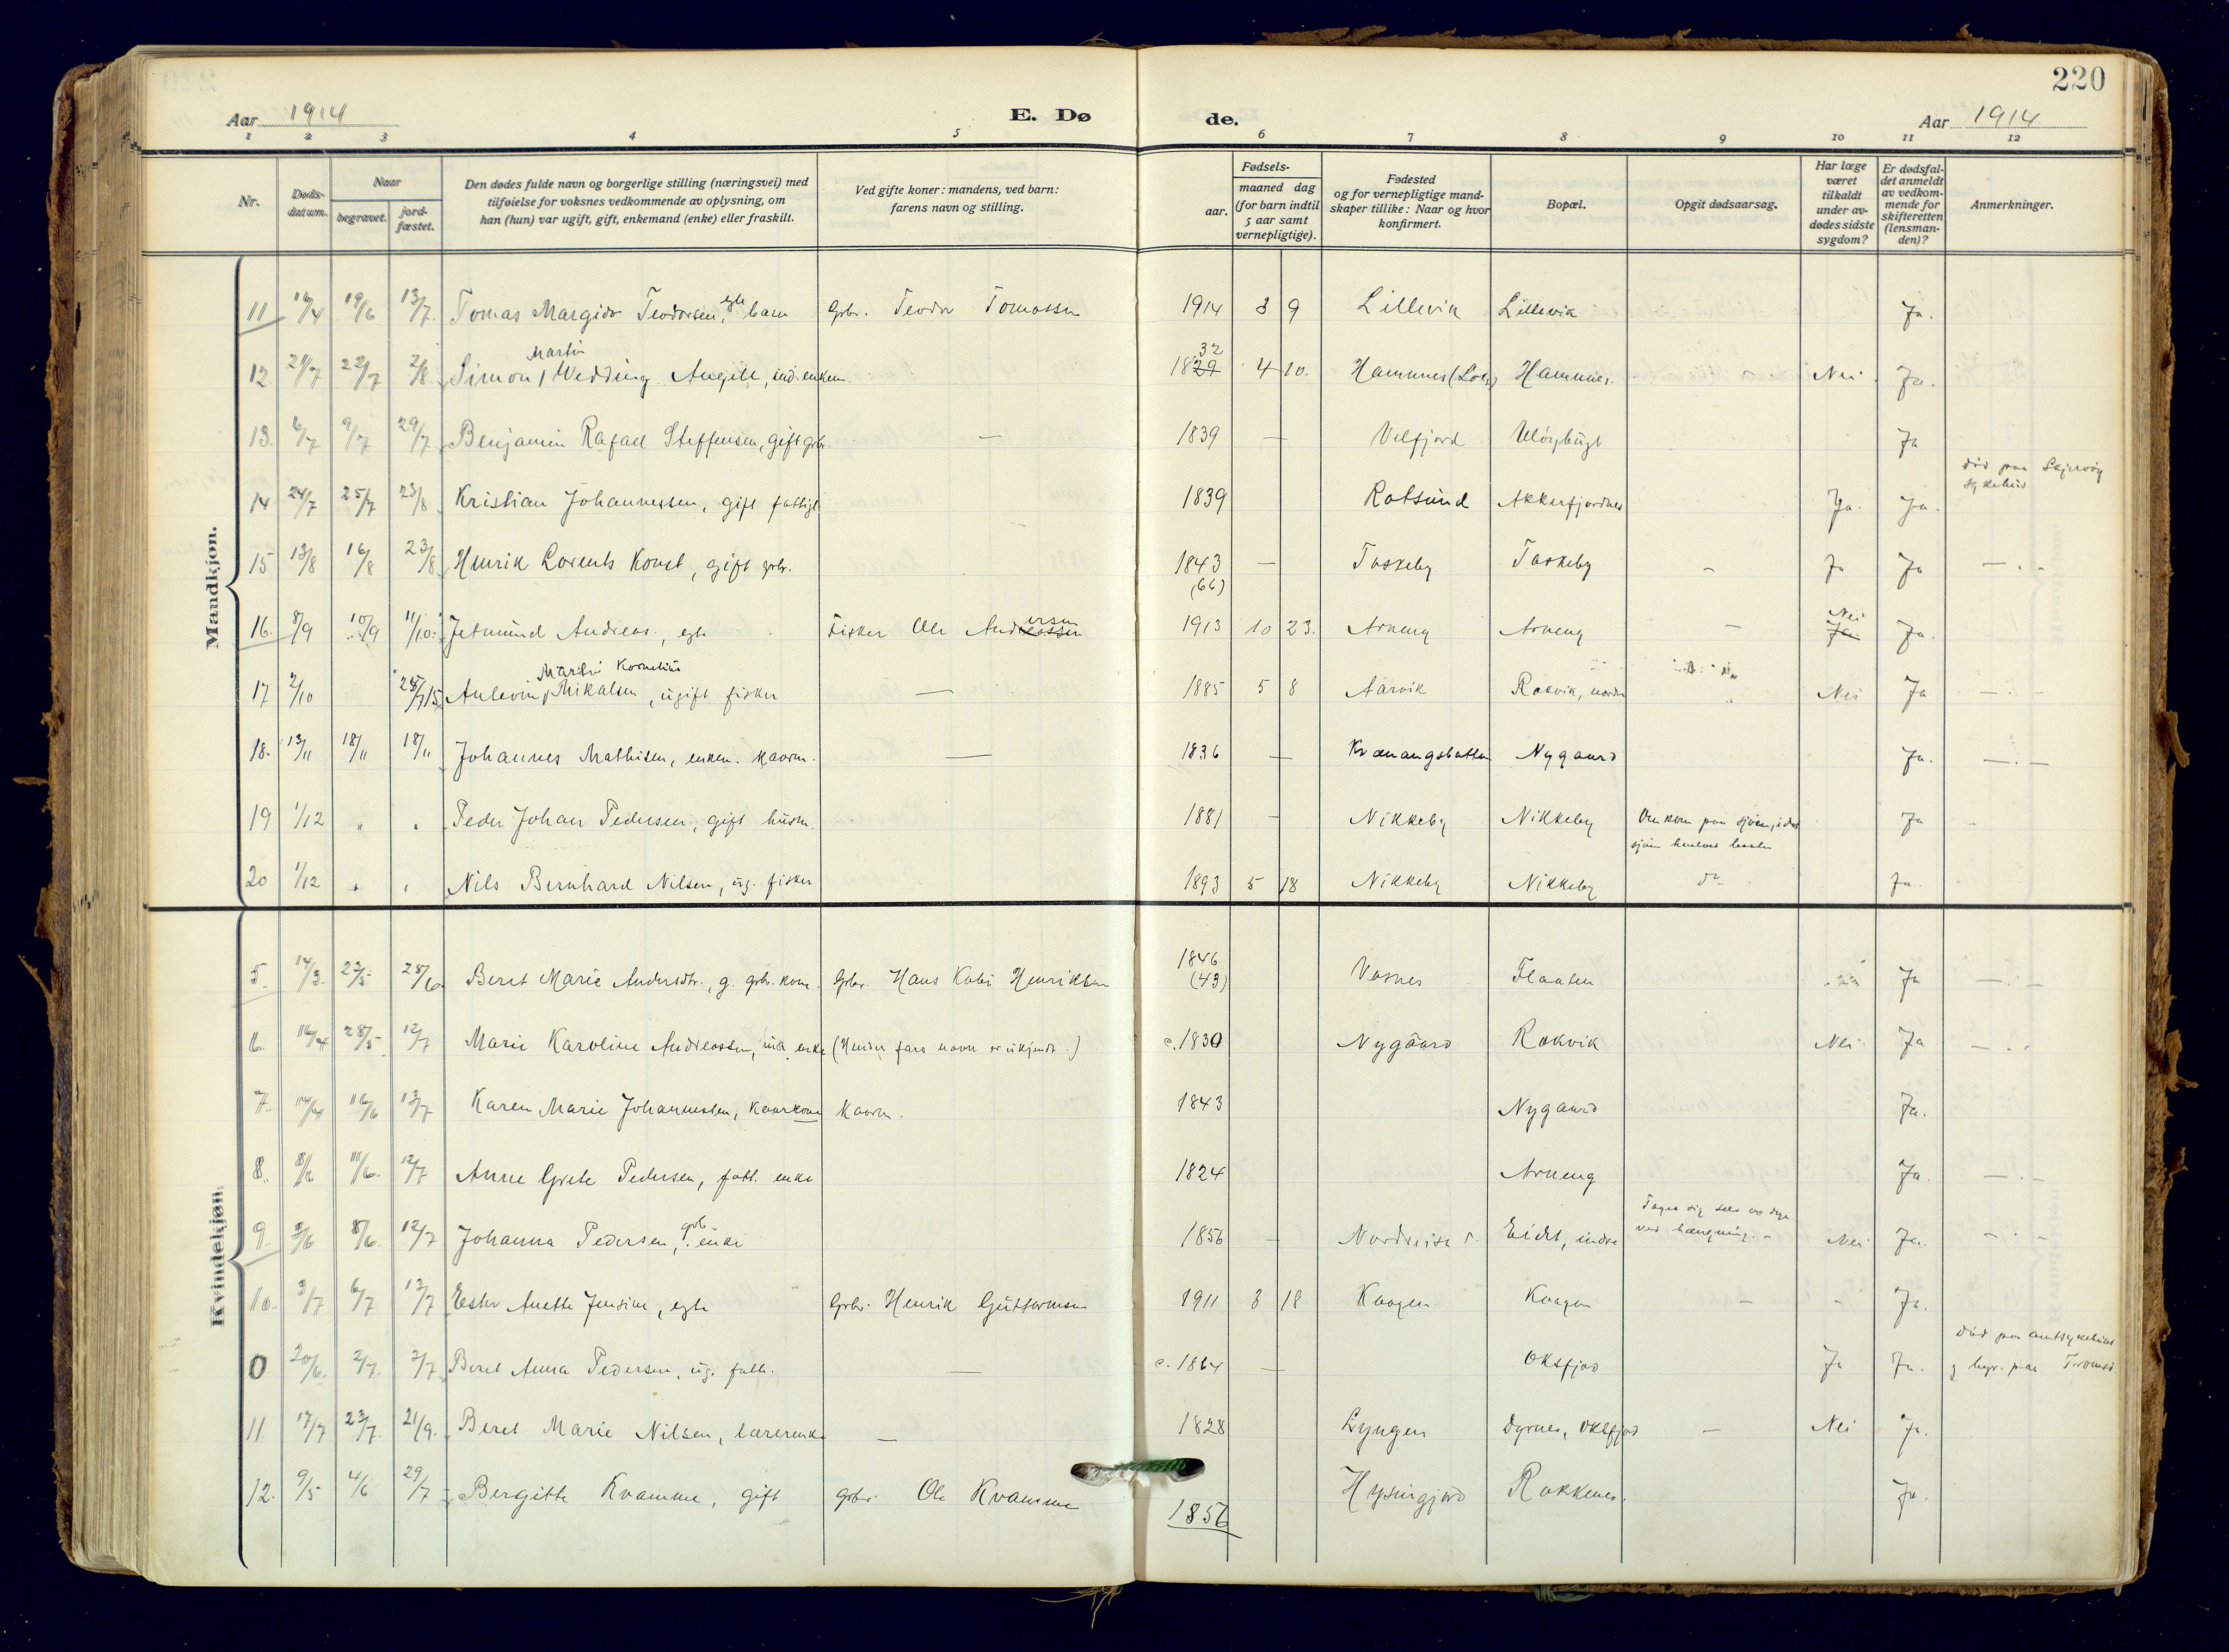 220
Aar 1914 E. Dø de. Aar 1914
1 2 3 4 5 6 7 8 9 10 11 12
Nr. Døds-datum. Naar begravet. jord-fæstet. Den dødes fulde navn og borgerlige stilling (næringsvei) med tilføielse for voksnes vedkommende av oplysning, om han (hun) var ugift, gift, enkemand (enke) eller fraskilt. Ved gifte koner: mandens, ved barn: farens navn og stilling. Fødsels- aar. maaned dag (for barn indtil 5 aar samt vernepligtige). Fødested og for vernepligtige mand-skaper tillike: Naar og hvor konfirmert. Bopæl. Opgit dødsaarsag. Har læge været tilkaldt under av-dødes sidste sygdom? Er dødsfal-det anmeldt av vedkom-mende for skifteretten (lensman-den)? Anmerkninger.
Mandkjøn.
11 19/6 13/7 Tomas Margido Teodorsen, egte barn Gbr. Teodor Tomassen 1914 3 9 Lillevik Lillevik Ja.
12. 21/7 22/7 2/8 Simon Martin Wedding, enkem. 1829 32 4 10. Hamnnes Hamnnes. Nei Ja.
13. 6/7 9/7 29/7 Benjamin Rafael Steffensen, gift gbr. — 1839 — Velfjord Uløybugt Ja
14 24/7 25/7 23/8 Kristian Johannessen, gift fattigl. 1839 Rotsund Akkarfjordnes Ja. Ja. død paa Skjervøy sykehus
15 13/8 16/8 23/8 Henrik Lorents Konst, gift gbr. 1843 (66) — Taskeby Taskeby – Ja Ja
16. 8/9 10/9 11/10. Jetmund Andreas, egte Fisker Ole Andreassen ersen 1913 10 23. Arneng Arneng – Nei Ja. Ja.
17 2/10 25/7 15 Anlevin Martin Kornelius Mikalsen, ugift fisker — 1885 5 8 Aarvik Rakvik, nordre Nei Ja
18. 13/11 18/11 18/11 Johannes Mathisen, enkem. Kaarm. — 1836 — Kvænangsbotten Nygaard Ja.
19 1/12 " " Peder Johan Pedersen, gift husm. — 1881 — Nikkeby Nikkeby Omkom paa sjøen, idet sjøen hvelvet baaten Ja
20 1/12 " " Nils Bernhard Nilsen, ug. fisker 1893 5 18 Nikkeby Nikkeby do Ja.
Kvindekjøn.
5. 14/3. 23/5 28/6 Beret Marie Andersdtr., g. gbr. kone. Gbr. Hans Kobi Henriksen 1846 (43) Vasnes Flaaten Ja
6. 16/4 28/5 12/7 Marie Karoline Andreassen, enke (Hendes fars navn er ukjendt.) c. 1830 Nygaard Rakvik Nei Ja
7. 14/4 16/6 13/7 Karen Marie Johannessen, Kaarkone Kaarm. 1843 Nygaard Ja.
8. 11/6. 12/7 Anne Grete Pedersen, fatt. enke 1824 Arneng Ja.
9. 3/6 8/6. 12/7 Johanna Pedersen, gbr. enke 1856 – Nordreisa Eidet, indre Taget sig selv av dage ved hængning. Nei Ja.
10. 3/7 6/7 13/7 Ester Anette Jensine, egte Gbr. Henrik Guttormsen 1911 3 18 Kaagen Kaagen – – Ja.
0 20/6. 2/7. 2/7 Beret Anna Pedersen, ug. fatt. — c. 1864 — Oksfjord Ja Ja. død paa amtsykehuset g begr. paa Tromsø
11 17/7 23/7. 21/9. Beret Marie Nilsen, lærerenke — 1828 Lyngen Dyrnes, Oksfjord — Nei Ja.
12. 9/5 4/6 29/7 Bergitte Kvamme, gift gbr. Ole Kvamme 1856 Rakkenes. Ja.